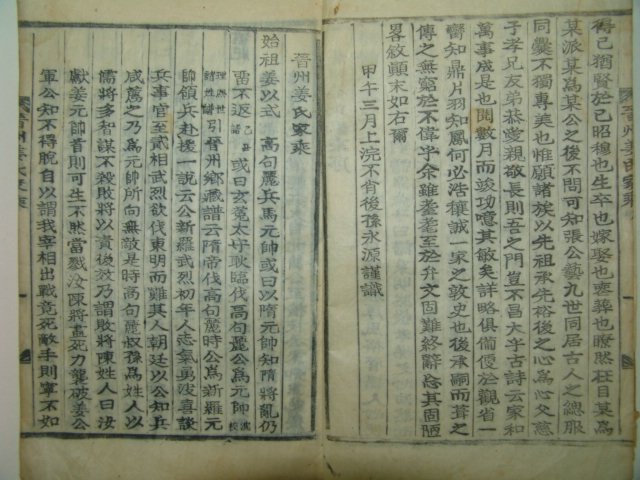 得己猶賢於己昭穆也生卒也嫁娶也喪葬也瞭然在目某爲
某派某爲某公之後不問可知張公藝九世同居古人之總服
同爨不獨專美也惟願諸族以先祖承先裕後之心爲心父慈
子孝兄友弟恭愛親敬長則吾之門豈不昌大乎古詩云家和
萬事成是也閱數月而竣功噫其敬矣詳略俱備便於觀省一
臠知鼎片羽知鳳何必浩穰誠一家之敦史也後承嗣而葺之
傳之無窮於不偉乎余雖耄耋至於弁文固難終辭忘其固陋
畧敘顚末如右爾
甲午三月上浣不肖後孫永源謹識
晉州姜氏家乘
晉州姜氏家乘
始祖姜以式
高句麗兵馬元帥或曰以隋元帥知隋將亂仍
留不返
或曰玄菟太守耿臨伐高句麗公爲元帥
引晉州鄕藏譜云隋帝伐高句麗時公爲新羅元
帥領兵赴援一說云公新羅武烈初年人志氣勇決喜談
兵事官至貳相武烈欲伐東明而難其人朝廷以公知兵
咸薦之乃爲元帥所向無敵是時高句麗叔孫爲姓人以
儒將多智謀不殺敗將以責後效乃謂敗將陳姓人曰汝
獻姜元帥首則可生不然當戮汝陳將盡死力襲破姜公
軍公知不得脫自以謂我宰相出戰竟死敵手則寧不如